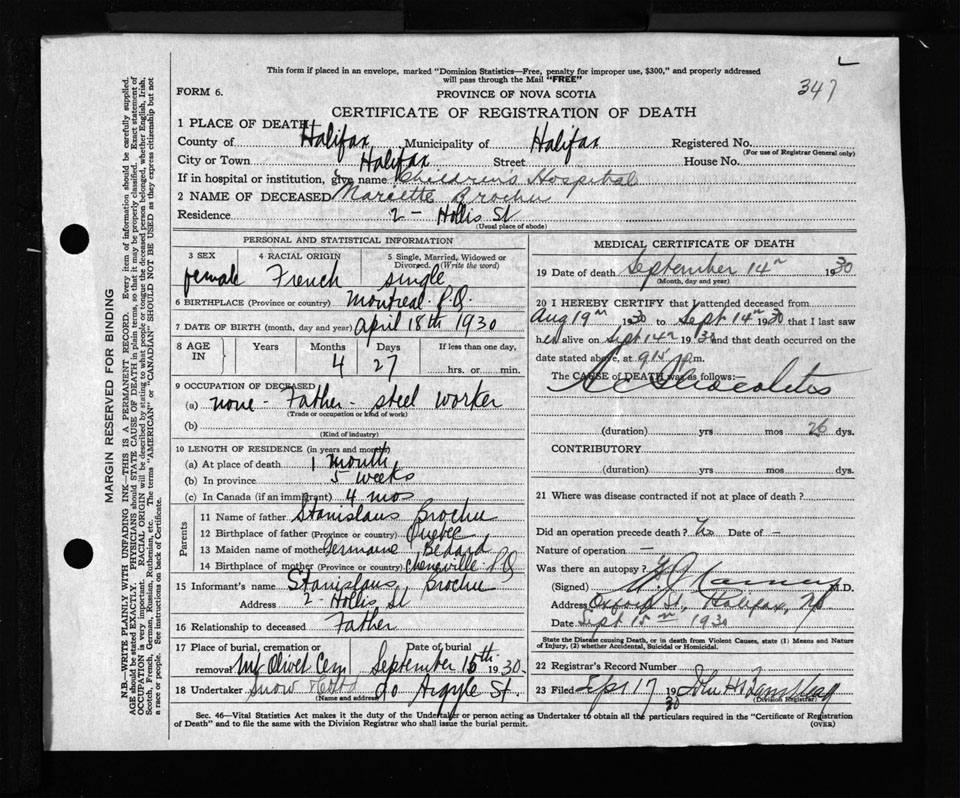 347
This form if placed in an envelope, marked "Dominion Statistics—Free, penalty for improper use, $300," and properly addressed
will pass through the Mail "FREE"
FORM 6.
PROVINCE OF NOVA SCOTIA
CERTIFICATE OF REGISTRATION OF DEATH
1 PLACE OF DEATH
County of Halifax Municipality of Halifax Registered No.
(For use of Registrar General only)
City or Town Halifax Street House No.
If in hospital or institution, give name Children's Hospital
2 NAME OF DECEASED Mariette Brochu
Residence 2 - Hollis St
(Usual place of abode)
PERSONAL AND STATISTICAL INFORMATION
3 SEX 4 RACIAL ORIGIN 5 Single, Married, Widowed or
Divorced. (Write the word)
female French single
6 BIRTHPLACE (Province or country) Montreal P.Q.
7 DATE OF BIRTH (month, day and year) April 18th 1930
8 AGE IN Years Months Days If less than one day,
4 27 hrs. or min.
9 OCCUPATION OF DECEASED
(a) none - Father - steel worker
(Trade or occupation or kind of work)
(b)
(Kind of industry)
10 LENGTH OF RESIDENCE (in years and months)
(a) At place of death 1 month
(b) In province 5 weeks
(c) In Canada (if an immigrant) 4 mos
Parents
11 Name of father Stanislaus Brochu
12 Birthplace of father (Province or country) Quebec
13 Maiden name of mother Germaine Bedard
14 Birthplace of mother (Province or country) Cheneville P.Q
15 Informant's name Stanislaus Brochu
Address 2 - Hollis St
16 Relationship to deceased Father
17 Place of burial, cremation or Date of burial
removal Mt Olivet Cem September 16th 1930
18 Undertaker Snow 90 Argyle St.
(Name and address)
MEDICAL CERTIFICATE OF DEATH
19 Date of death September 14th 1930
(Month, day and year)
20 I HEREBY CERTIFY that I attended deceased from
Aug 19th 1930 to Sept 14th 1930 that I last saw
her alive on Sept 14th 1930 and that death occurred on the
date stated above, at 9.15 p.m.
The CAUSE of DEATH was as follows:—
(duration) yrs mos 26 dys.
CONTRIBUTORY
(duration) yrs mos dys.
21 Where was disease contracted if not at place of death?
Did an operation precede death? No Date of -
Nature of operation —
Was there an autopsy?
(Signed) M.D.
Address Oxford St., Halifax, NS
Date Sept 15th 1930
State the Disease causing Death, or in death from Violent Causes, state (1) Means and Nature
of Injury, (2) whether Accidental, Suicidal or Homicidal.
22 Registrar's Record Number
23 Filed Sept 17 1930 John
(Division Registrar)
Sec. 46—Vital Statistics Act makes it the duty of the Undertaker or person acting as Undertaker to obtain all the particulars required in the "Certificate of Registration
of Death" and to file the same with the Division Registrar who shall issue the burial permit.
(OVER)
MARGIN RESERVED FOR BINDING
N.B.—WRITE PLAINLY WITH UNFADING INK—THIS IS A PERMANENT RECORD. Every item of information should be carefully supplied.
AGE should be stated EXACTLY. PHYSICIANS should STATE CAUSE OF DEATH in plain terms, so that it may be properly classified. Exact statement of
OCCUPATION is very important. RACIAL ORIGIN will be described by stating to what people or tongue the deceased person belonged, whether English, Irish,
Scotch, French, German, Russian, Ruthenian, etc. The terms "AMERICAN" or "CANADIAN" SHOULD NOT BE USED as they express citizenship but not
a race or people. See instructions on back of Certificate.